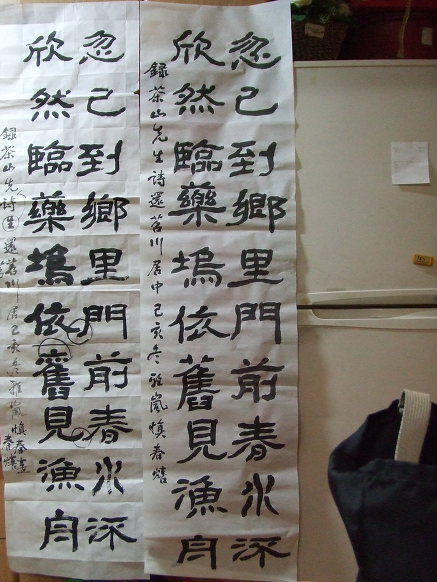 忽已到鄉里門前春水流
欣然臨藥塢依舊見漁舟
錄茶山先生詩還苕川居中己亥冬雅嵐慎春熺
忽已到鄉里門前春水流
欣然臨藥塢依舊見漁舟
錄茶山先詩還苕川居己亥冬雅嵐慎春
春熺